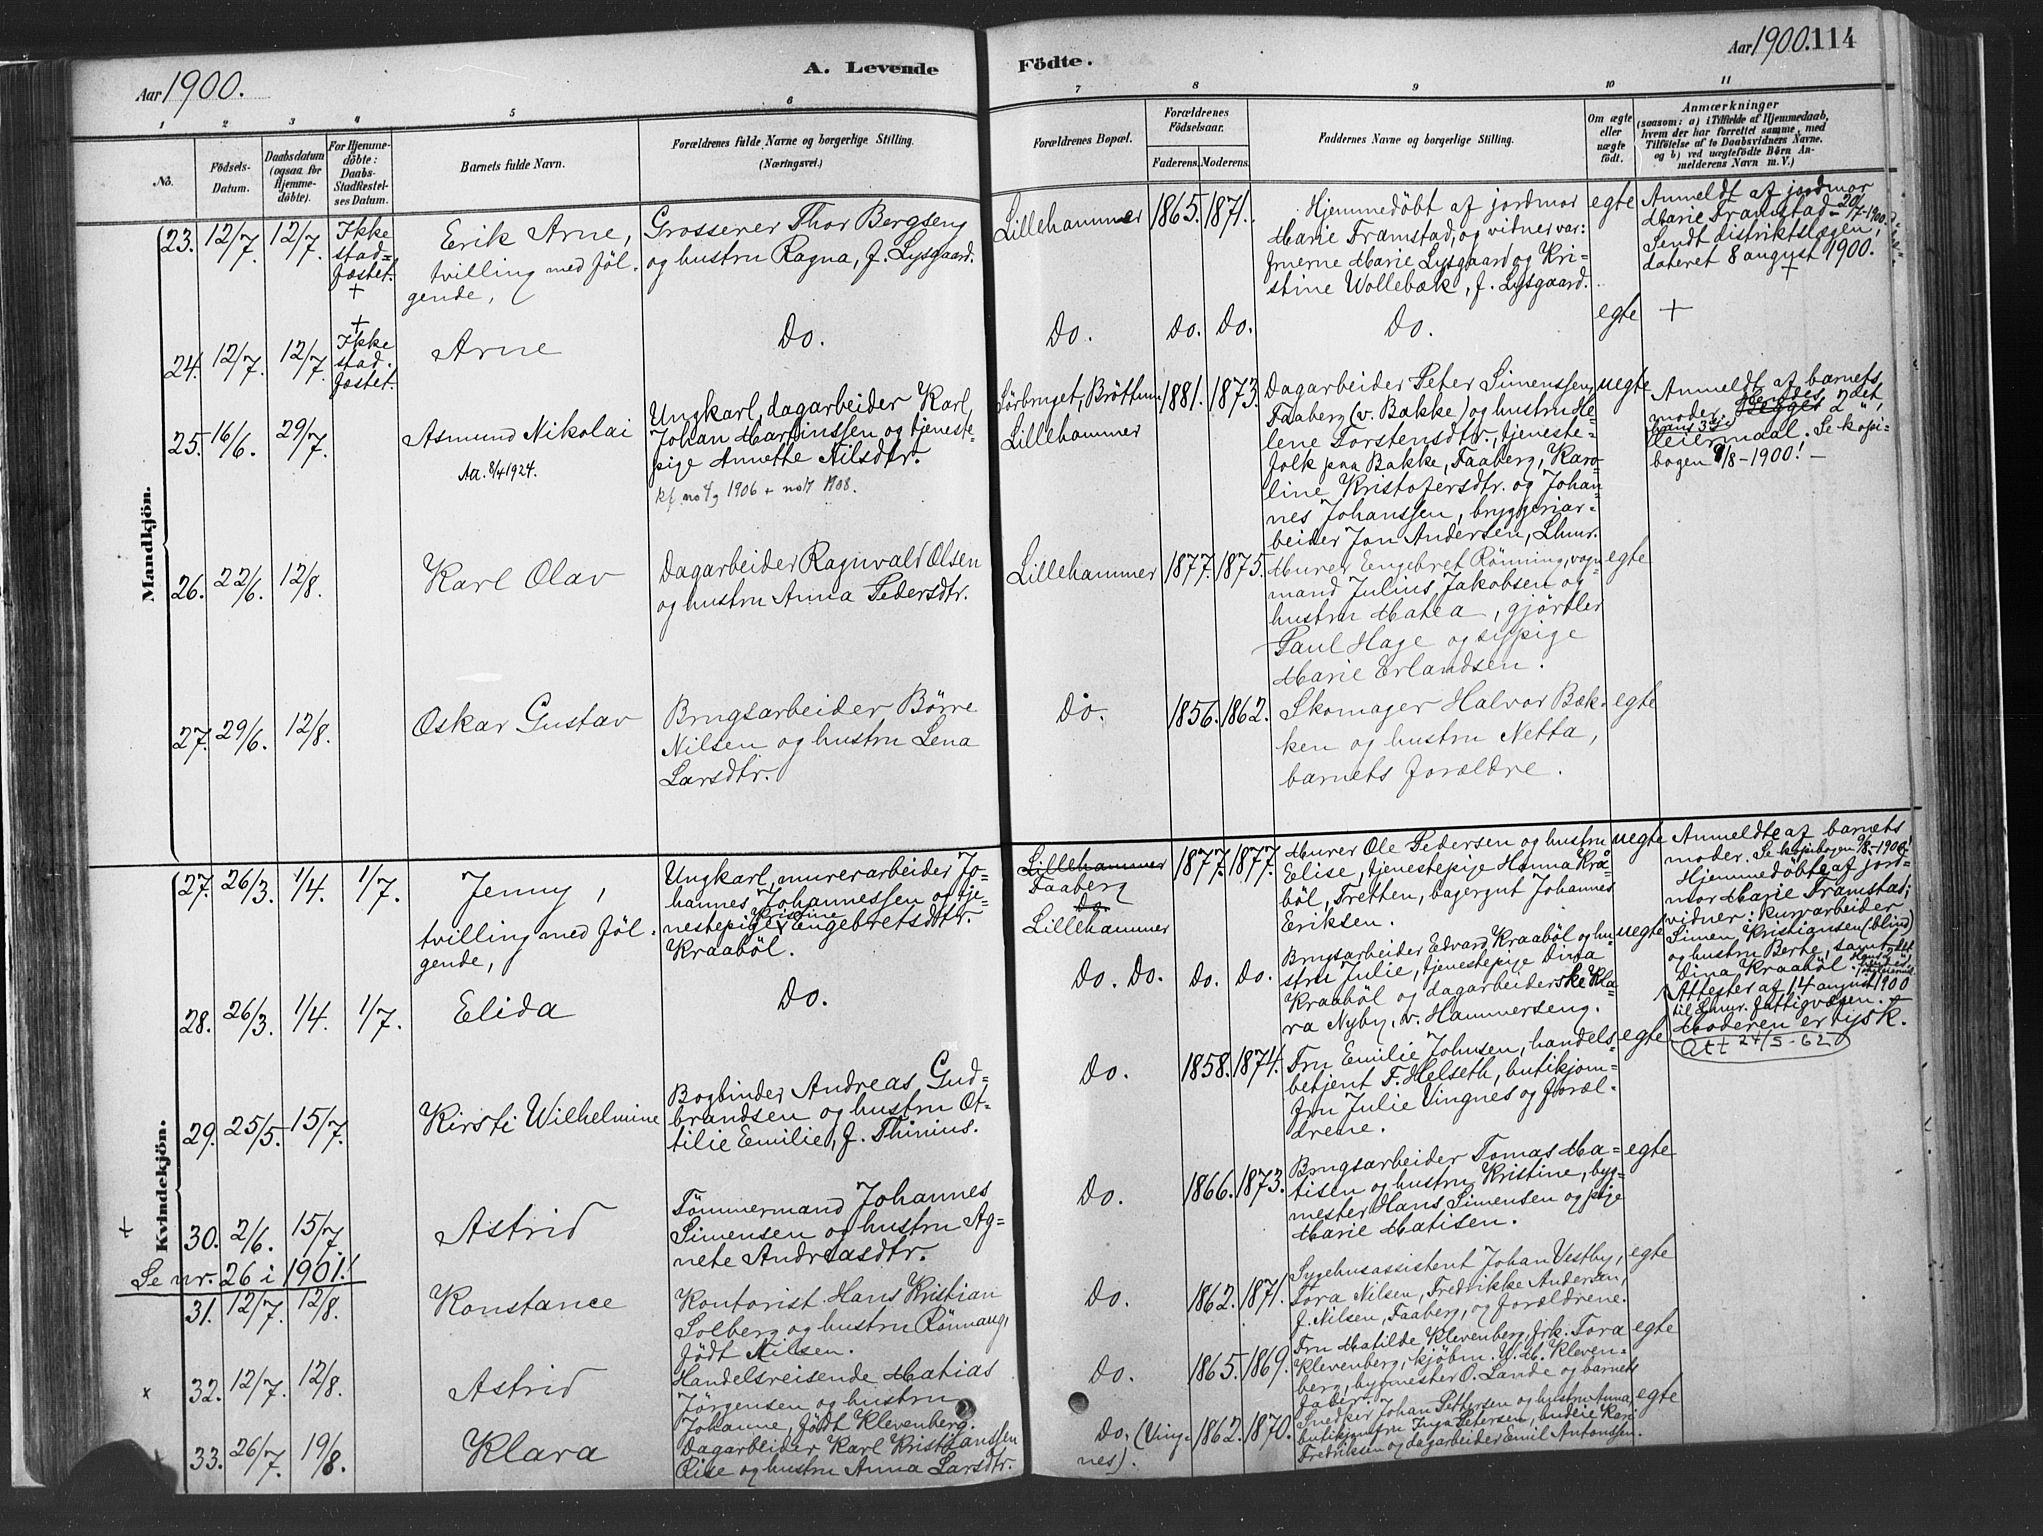 Aar 1900.
A. Levende
Födte.
Aar 1900. 114
1
2
3
4
5
6
7
8
9
10
11
No.
Födsels-
Datum.
Daabsdatum
(ogsaa for
Hjemme-
döbte).
For Hjemme-
döbte:
Daabs-
Stadfæstel-
ses Datum.
Barnets fulde Navn.
Forældrenes fulde Navne og borgerlige Stilling.
(Næringsvei.)
Forældrenes Bopæl.
Forældrenes
Födselsaar.
Faderens. Moderens.
Faddernes Navne og borgerlige Stilling.
Om ægte
eller
uægte
födt.
Anmærkninger
(saasom: a) i Tilfælde af Hjemmedaab,
hvem der har forrettet samme, med
Tilföielse af to Daabsvidners Navne.
og b) ved uægtefödte Börn An-
melderens Navn m. V.)
Mandkjön.
23. 12/7. 12/7.
Ikke
stad=
fæstet.
+
Erik Arne,
tvilling med föl-
gende,
Grosserer Thor Bergseng
og hustru Ragna, f. Lysgaard.
Lillehammer 1865. 1871.
Hjemmedöbt af jordmor
Marie Framstad, og vidner var:
fruerne Marie Lysgaard og Kri-
stine Wollebæk, f. Lysgaard.
egte
Anmeldt af jordmor
Marie Framstad 20/7-1900.
Sendt distriktslægen,
dateret 8 august 1900.
+
24. 12/7. 12/7.
+
Ikke
stad-
fæstet.
Arne
Do.
Do. Do. Do.
Do.
egte
+
25. 16/6. 29/7.
Asmund Nikolai
Aa. 8/4 1924.
Ungkarl, dagarbeider Karl
Johan Martinssen og tjeneste-
pige Annette Nilsdtr.
kf. no 4g 1906 + no 17 1908.
Sörbruget, Bröttum
Lillehammer
1881. 1873.
Dagarbeider Peter Simenssen
Faaberg (v. Bakke) og hustru He-
lene Torstensdtr., tjeneste-
folk paa Bakke, Faaberg, Karo-
line Kristofersdtr. og Johan-
nes Johanssen, bryggeriar-
beider Jon Andersen, Lhmr.
uegte
Anmeldt af barnets
moder. Hendes 2det,
hans 3die
leiermaal. Se kopi-
bogen 9/8-1900! —
26. 22/6. 12/8.
Karl Olav
Dagarbeider Ragnvald Olsen
og hustru Anna Pedersdtr.
Lillehammer 1877. 1875.
Murer Engebret Rönning, vogn
mand Julius Jakobsen og
hustru Matea, gjörtler
Paul Hage og sypige
Marie Erlandsen.
egte
27. 29/6. 12/8.
Oskar Gustav
Brugsarbeider Börre
Nilsen og hustru Lena
Larsdtr.
Do. 1856. 1862.
Skomager Halvor Bæk-
ken og hustru Netta,
barnets forældre.
egte
Kvindekjön.
27. 26/3. 1/4. 1/7.
Jenny,
tvilling med föl-
gende,
Ungkarl, murerarbeider Jo-
hannes Johannessen og tje-
nestepige Kristine Engebretsdtr.
Kraaböl.
Lillehammer
Faaberg
Do.
Lillehammer
1877. 1877.
Murer Ole Pedersen og hustru
Elise, tjenestepige Hanna Kra-
böl, Fretten, bagergut Johannes
Eriksen.
uegte
Anmeldte af barnets
moder. Se kopibogen 9/8-1900.
Hjemmedöbte af jord-
mor Marie Framstad;
vidner: kurvarbeider
Simen Kristiansen (blind)
og hustru Berte, samt
Dina Kraaböl.
Attester af 14 august 1900
til Lhmr. Fattigvæsen.
Moderen er tysk.
Att 24/5-62
28. 26/3. 1/4. 1/7.
Elida
Do.
Do. Do. Do. Do.
Brugsarbeider Edvard Kraaböl og hu
stru Julie, tjenestepige Dina
Kraaböl og dagarbeiderske Kla-
ra Nyby, v. Hammerseng.
uegte
29. 25/5. 15/7.
Kirsti Wilhelmine
Bogbinder Andreas Gud-
brandsen og hustru Ot-
tilie Emilie, f. Thinius.
Do. 1858. 1874.
Fru Emilie Johnsen, handels-
betjent F. Helseth, butikjom-
fru Julie Vingnes og foræl-
drene.
egte
+
30. 2/6. 15/7.
Astrid
Tömmermand Johannes
Simensen og hustru Ag-
nete Andreasdtr.
Do. 1866. 1873.
Brugsarbeider Tomas Ma-
tisen og hustru Kristine, byg-
mester Hans Simensen og pige
Marie Matisen.
egte
Se nr. 26 i 1901!
31. 12/7. 12/8.
Konstance
Kontorist Hans Kristian
Solberg og hustru Rönnaug,
födt Nilsen.
Do. 1862. 1871.
Sygehusassistent Johan Vestby,
Tora Nilsen, Fredrikke Andersen,
f. Nilsen, Faaberg, og forældrene.
egte
x
32. 12/7. 12/8.
Astrid
Handelsreisende Matias
Jörgensen og hustru
Johanne, födt Klevenberg.
Do. 1865. 1869.
Fru Matilde Klevenberg, frk. Tora
Klevenberg, kjöbm. W. M. Kleven-
berg, bygmester O. Lande og barnets
fader.
egte
33. 26/7. 19/8.
Klara
Dagarbeider Karl Kristianssen
Rise og hustru Anna Larsdtr.
Do. (Ving-
nes).
1862. 1870.
Snedker Johan Pettersen og hustru Anna,
butikjomfru Inga Petersen, budeie Karen
Fredriksen og dagarbeider Emil Antonssen.
egte